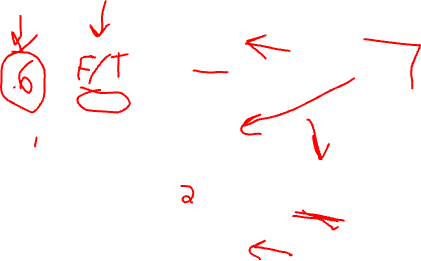 .6 F/T
1
2